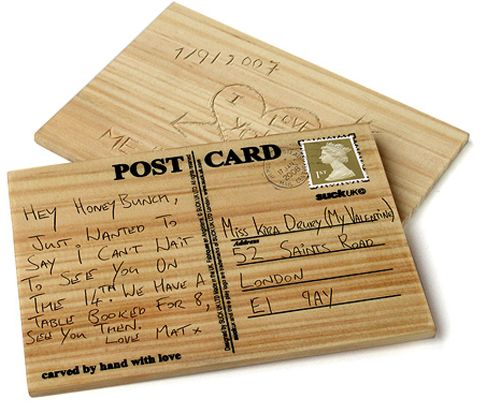 1/9/2007
I
LOVE
ME
POST CARD
1ST
SUCK UK©
HEY HONEYBUNCH,
JUST WANTED TO
SAY I CAN'T WAIT
TO SEE YOU ON
THE 14TH. WE HAVE A
TABLE BOOKED FOR 8,
SEE YOU THEN.
LOVE MAT x
MISS KIRA DRURY (MY VALENTINE)
Address
52 SAINTS ROAD
LONDON
E1 9AY
carved by hand with love